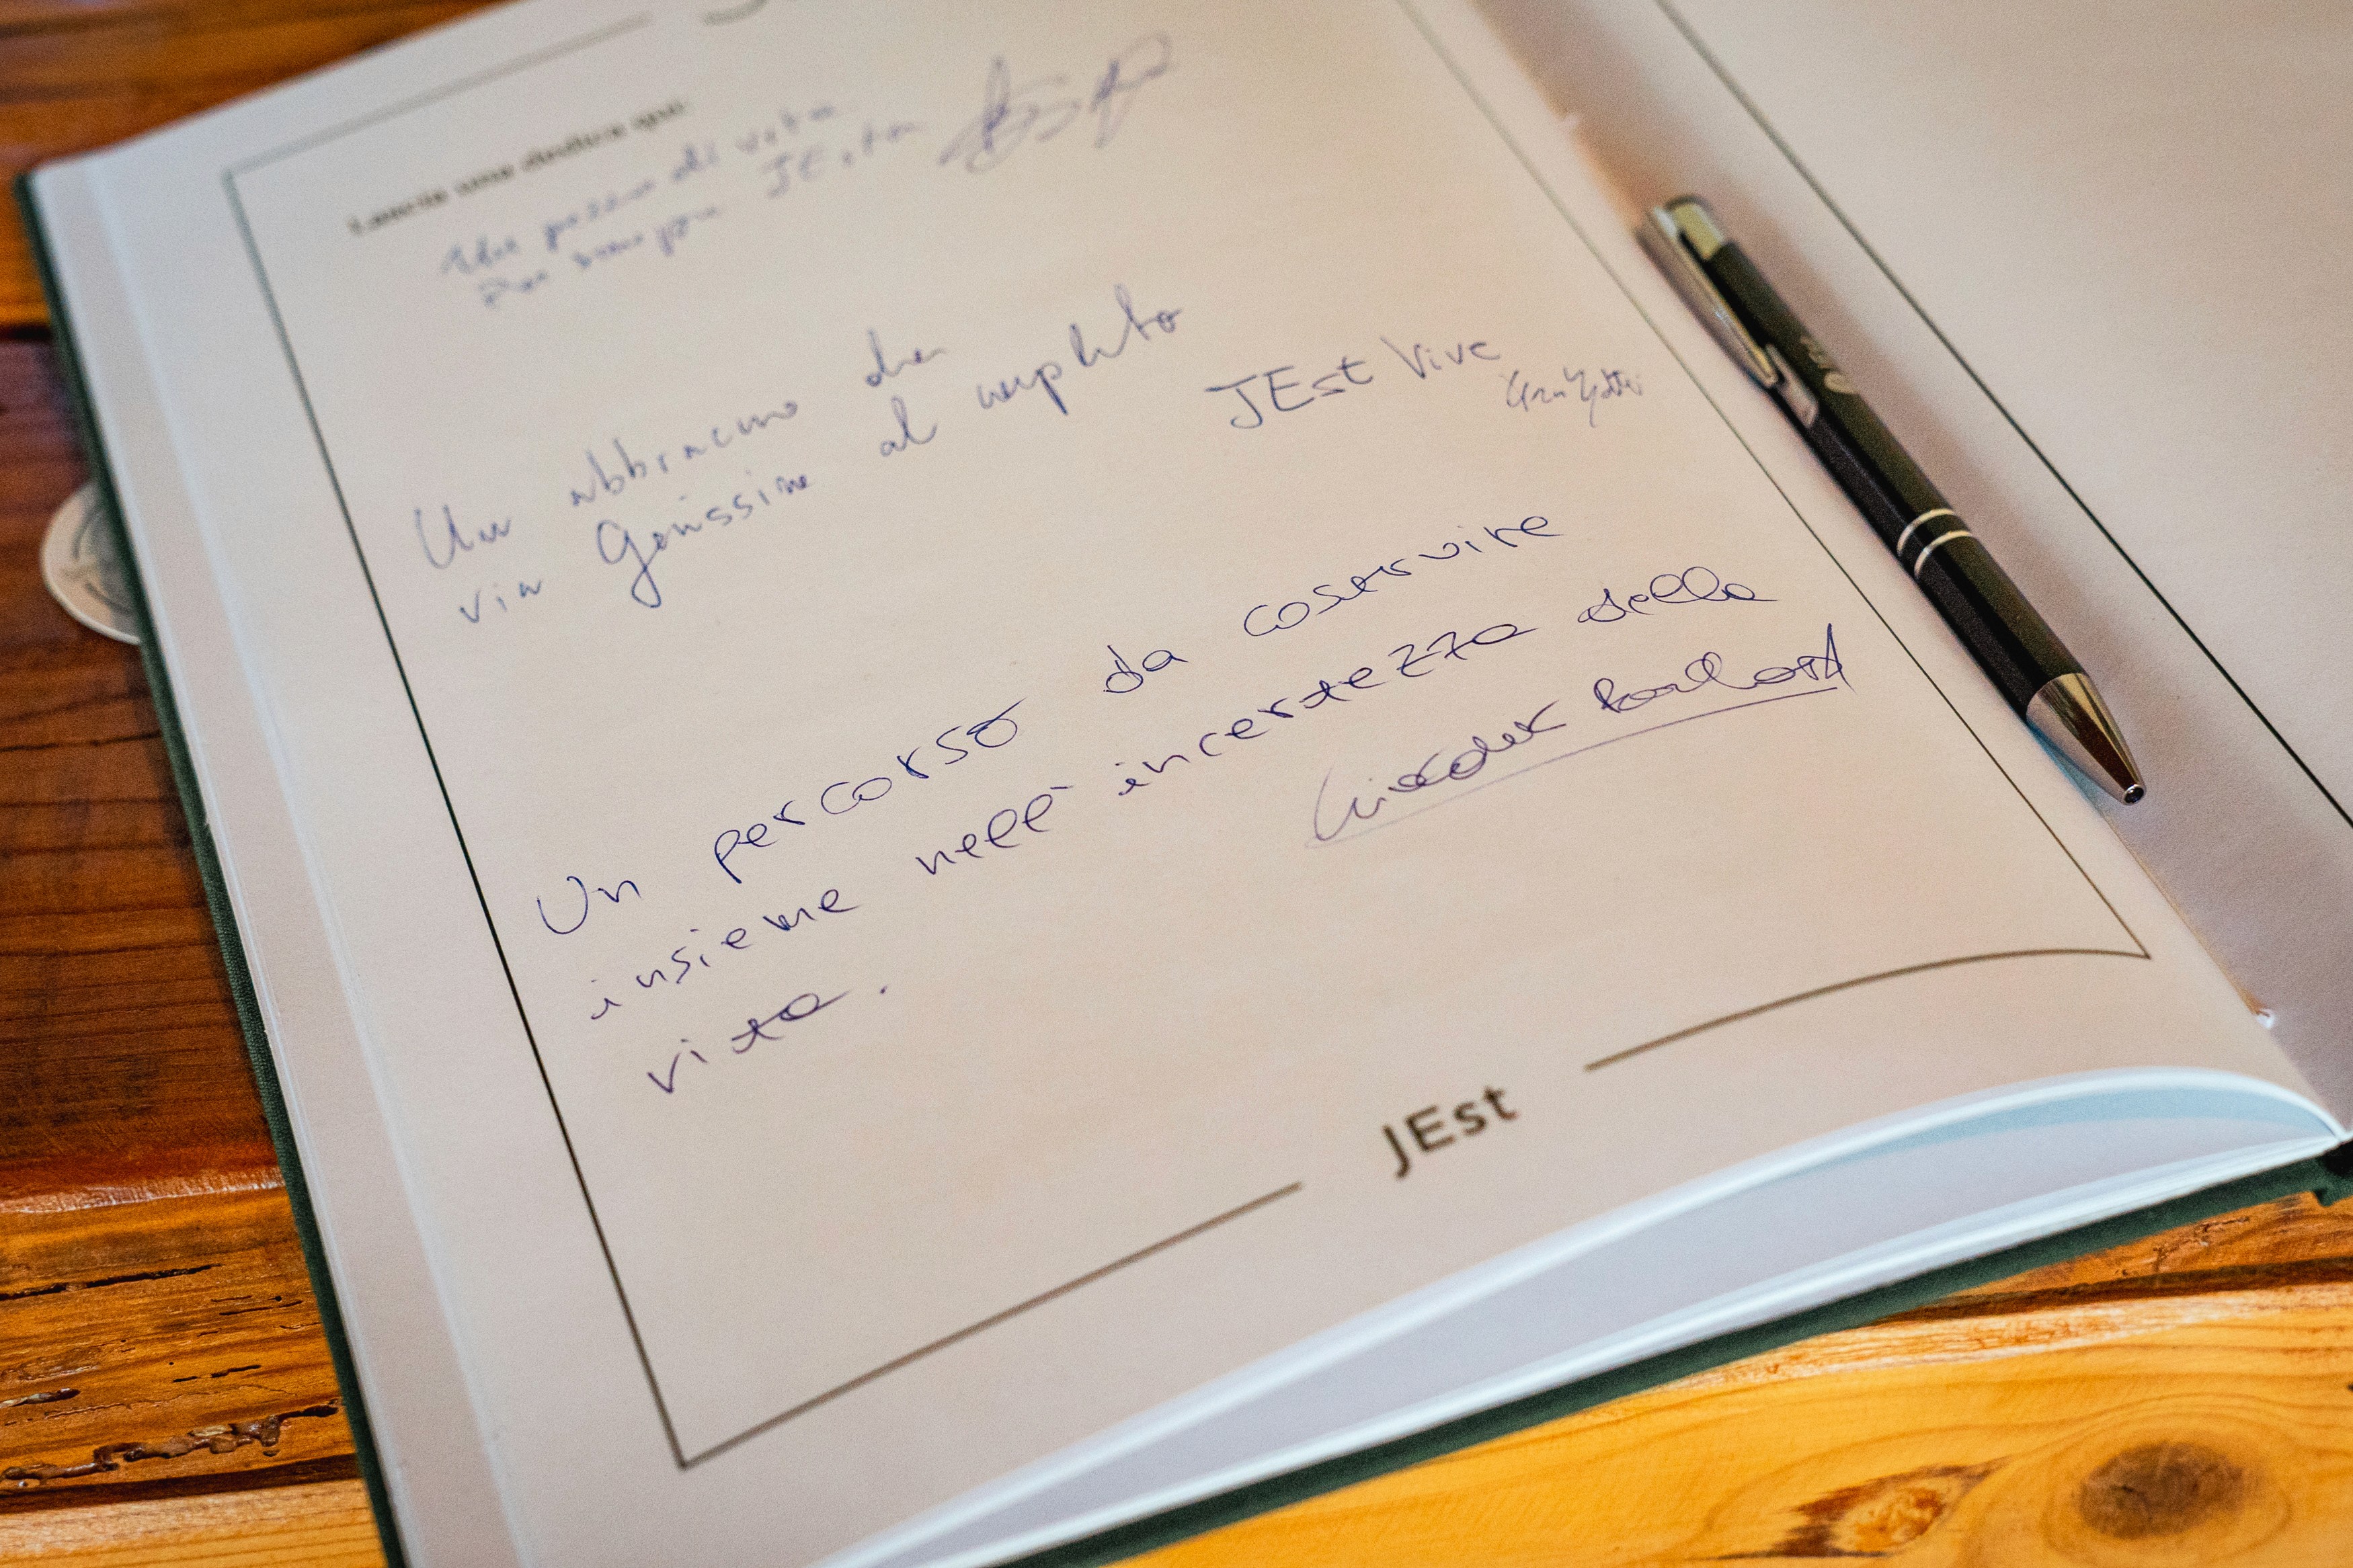 Lascia una dedica qui:
Un pezzo di vita
Per sempre JEsta
Un abbraccio da
via Genissine al
JEst Vive
Un percorso da coservire
insieme nell' incertezza della
vita.
JEst